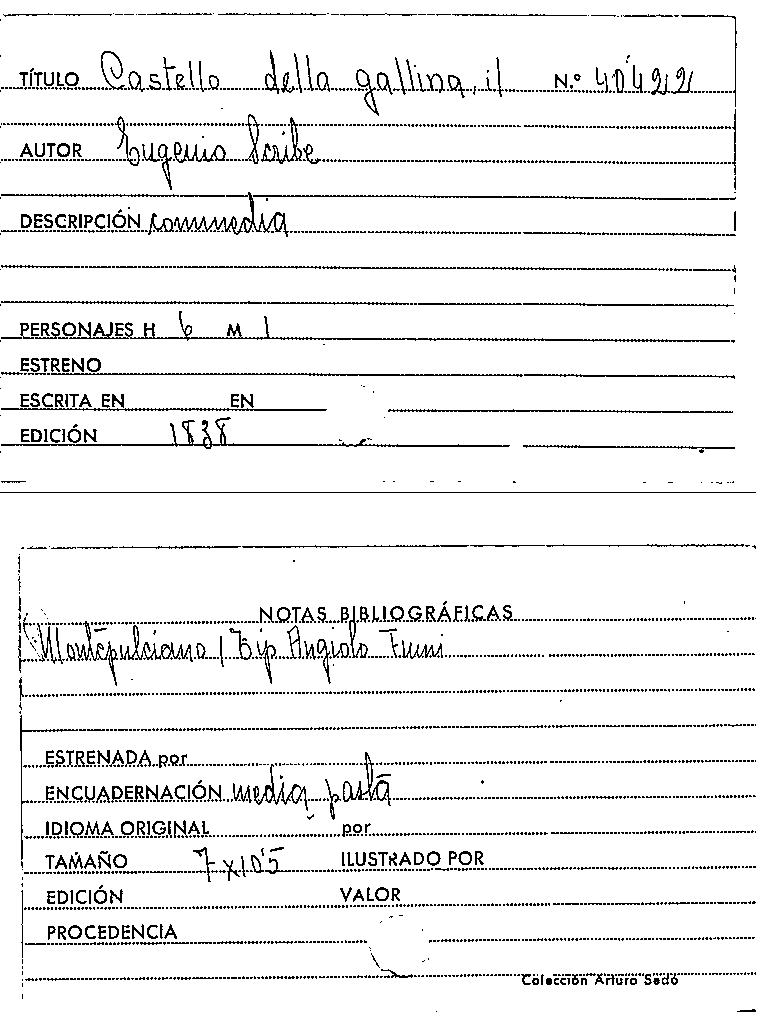 TÍTULO Castello della gallina, il N.º 40422
AUTOR Eugenio Scribe
DESCRIPCIÓN commedia
PERSONAJES H 6 M 1
ESTRENO
ESCRITA EN EN
EDICIÓN 1838
NOTAS BIBLIOGRÁFICAS
Montepulciano / Tip Angiolo Fumi
ESTRENADA por
ENCUADERNACIÓN media pasta
IDIOMA ORIGINAL por
TAMAÑO 7 x 10'5 ILUSTRADO POR
EDICIÓN VALOR
PROCEDENCIA
Colección Arturo Sedó